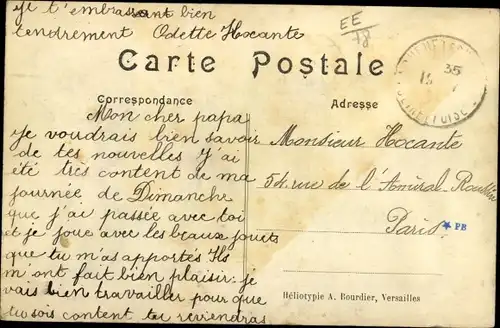 Je t'embrassant bien
tendrement Odette Hocante
EE
78
Carte Postale
Correspondance
Adresse
35
SEINE ET OISE
Mon cher papa
je voudrais bien savoir
de tes nouvelles J'ai
été très content de ma
journée de Dimanche
que j'ai passée avec toi
et je joue avec les beaux jouets
que tu m'as apportés Ils
m'ont fait bien plaisir. je
vais bien travailler pour que
tu sois content tu reviendras
Monsieur Hocante
54. rue de l'Amiral-Roussin
Paris.
* PB
Héliotypie A. Bourdier, Versailles